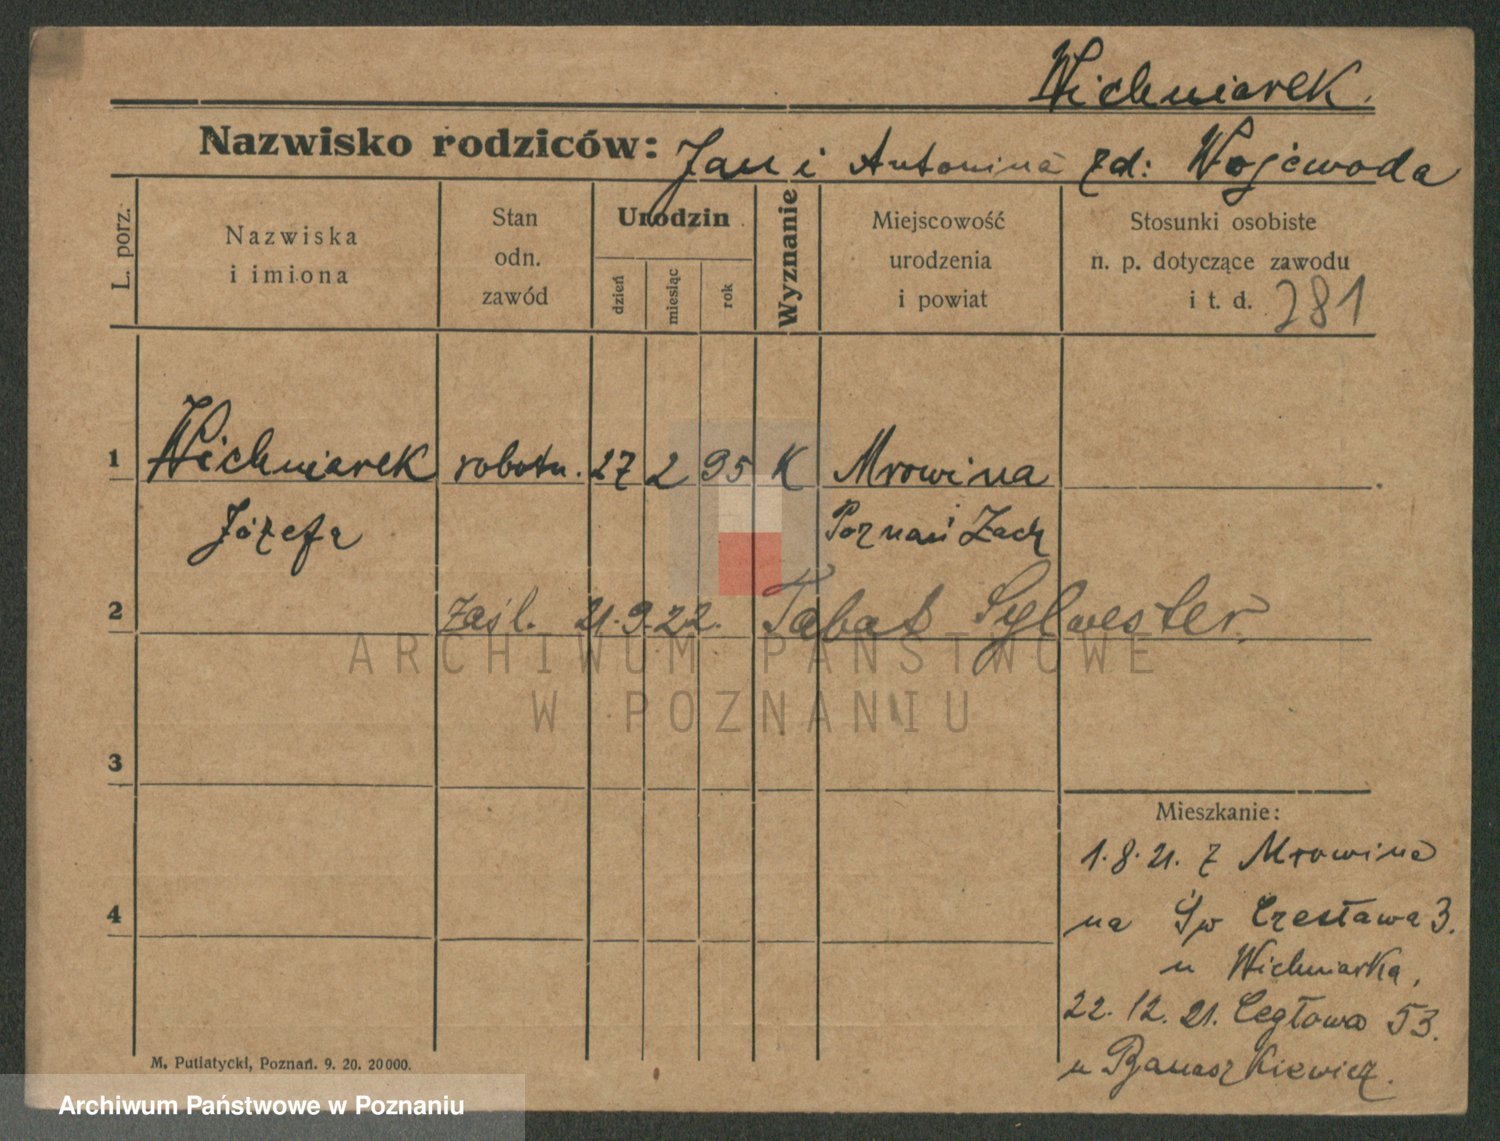 Wichniarek.
Nazwisko rodziców: Jan i Antonina zd: Wojewoda
L. porz.
Nazwiska
i imiona
Stan
odn.
zawód
Urodzin
dzień
miesiąc
rok
Wyznanie
Miejscowość
urodzenia
i powiat
Stosunki osobiste
n. p. dotyczące zawodu
i t. d. 281
1 Wichniarek robotn. 27 2 95 K Mrowina
Józefa Poznań Zach
2 zaśl. 21.9.22. Tabat Sylwester.
3
4
Mieszkanie:
1.8.21. z Mrowina
na Św Czesława 3.
u Wichniarka,
22.12.21. Cegłowa 53.
u Banaszkiewicz.
M. Putiatycki, Poznań. 9. 20. 20000.
ARCHIWUM PAŃSTWOWE
W POZNANIU
Archiwum Państwowe w Poznaniu